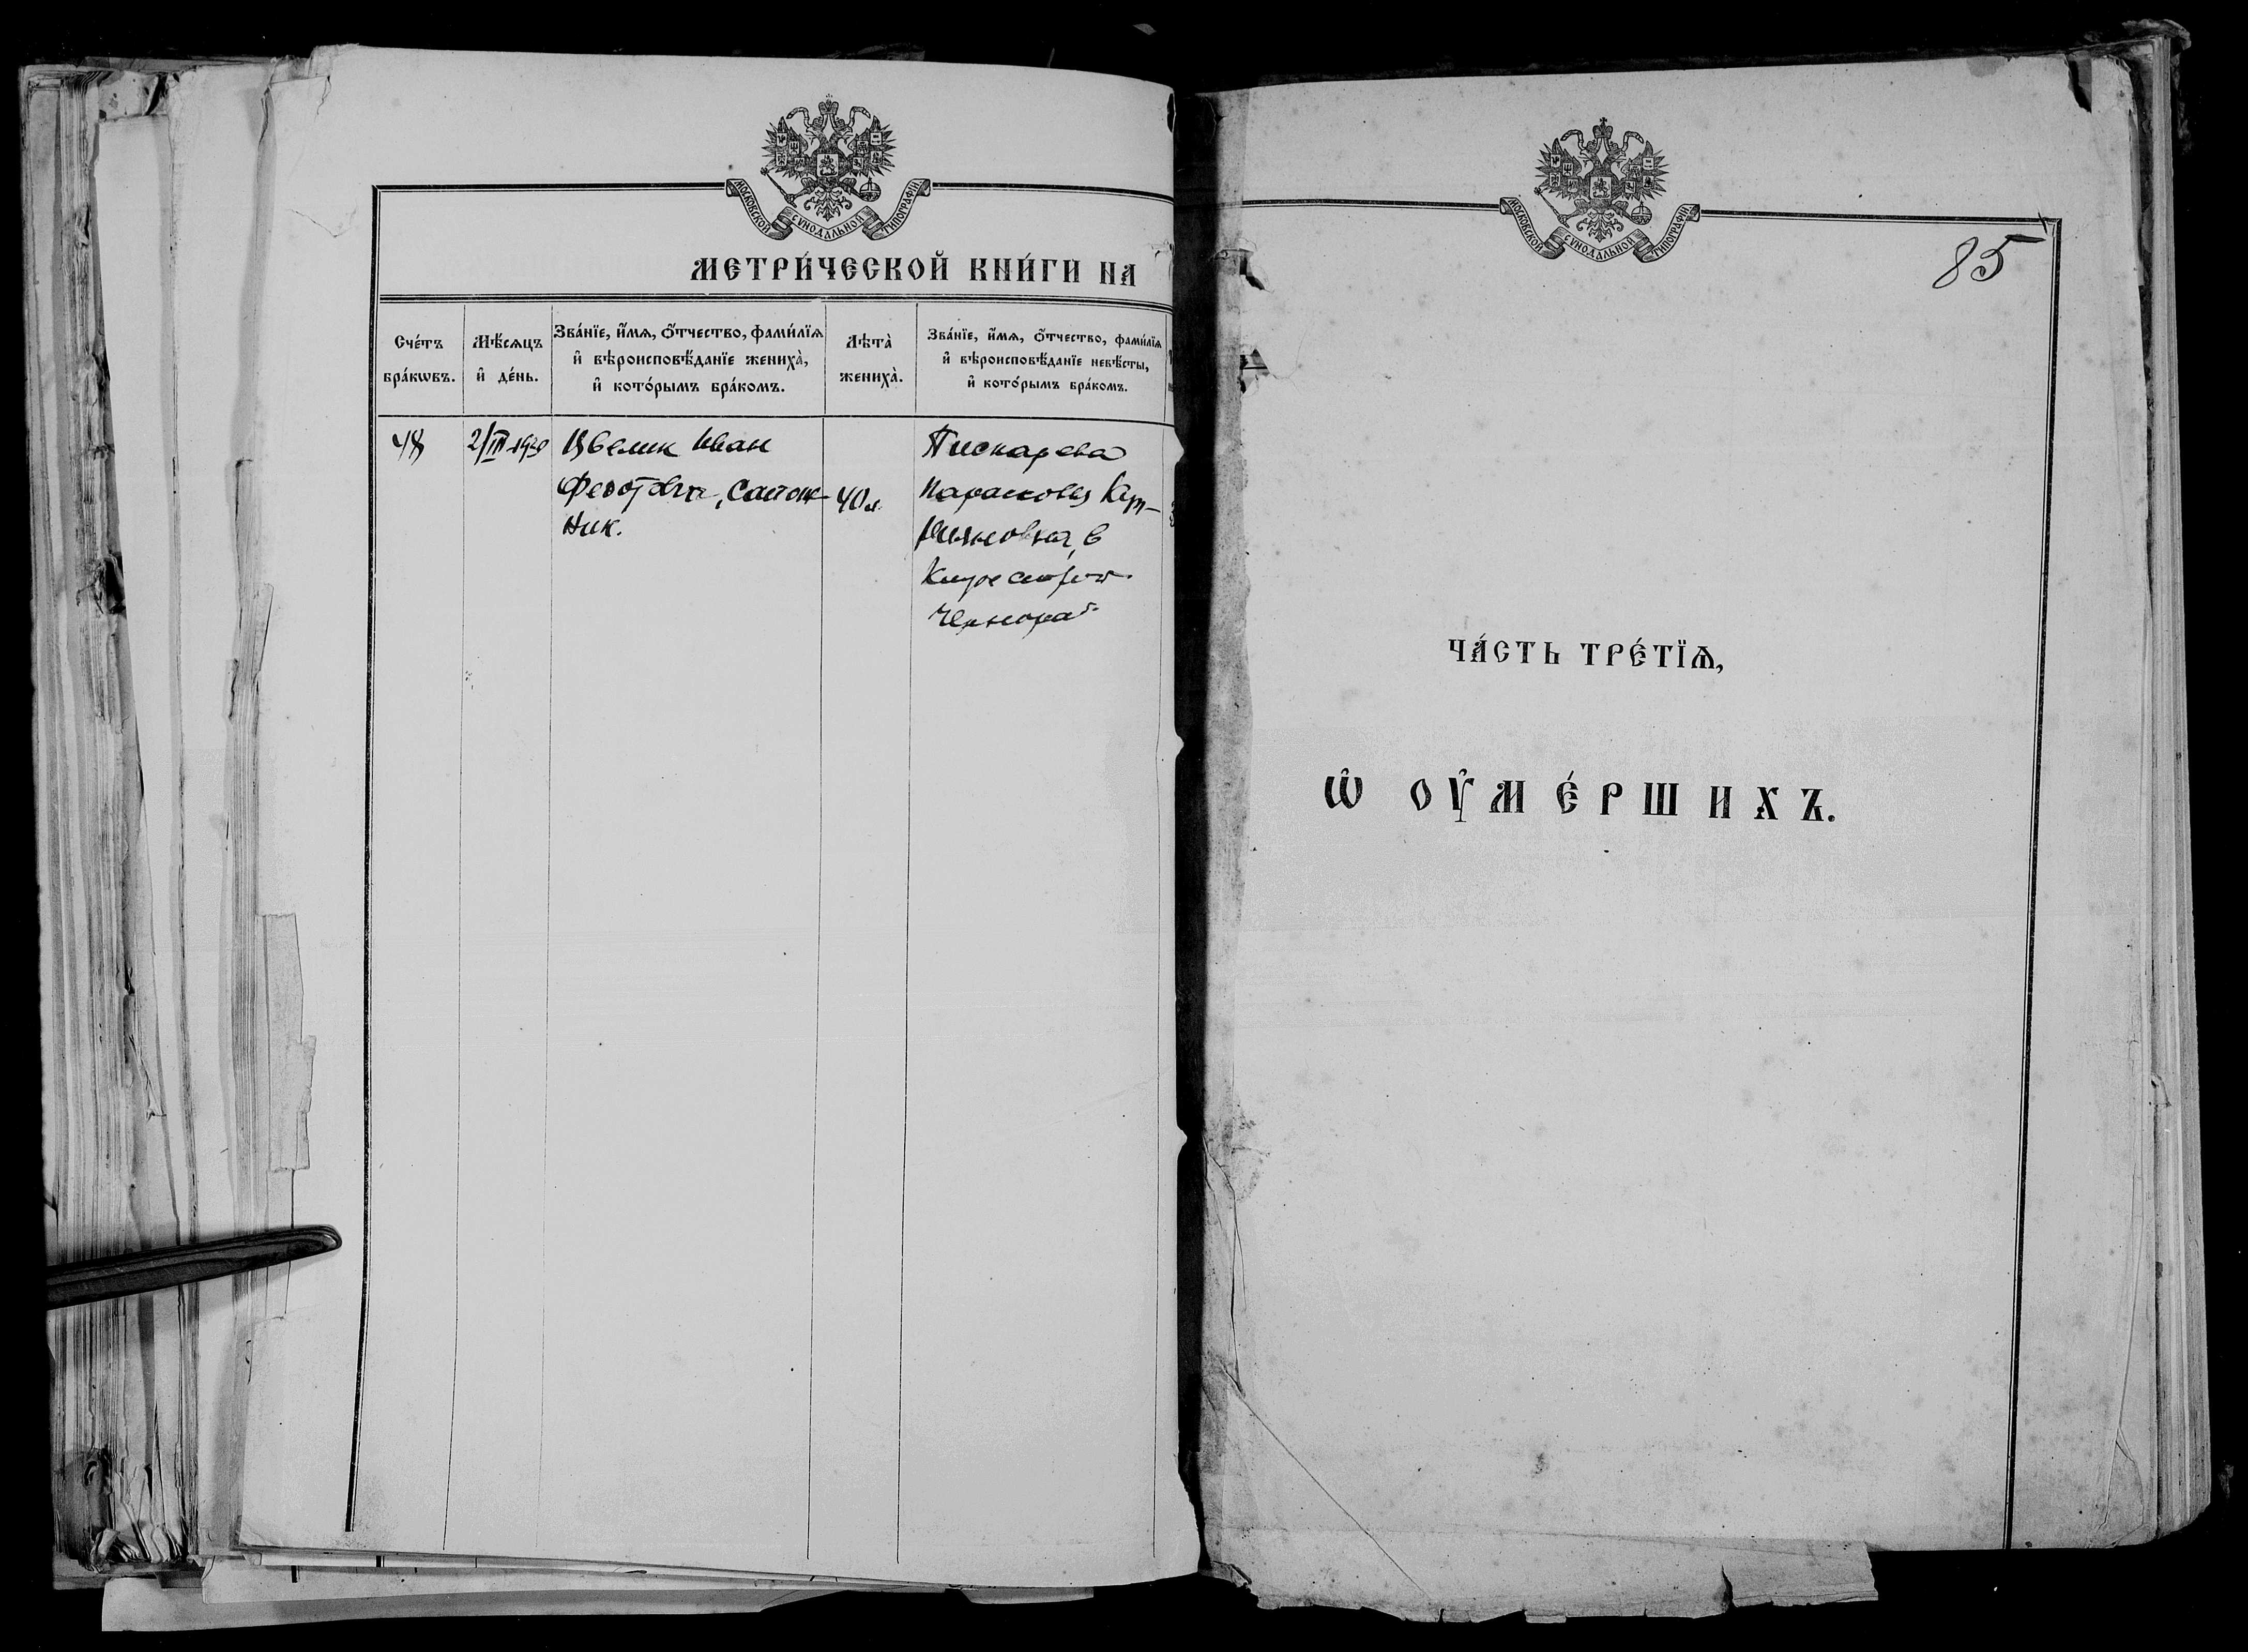 МОСКОВСКОЙ СѴНОДАЛЬНОЙ ТИПОГРАФІИ
МЕТРИ́ЧЕСКОЙ КНИ́ГИ НА
Сче́тъ
бра́кѡвъ.
Мѣ́сѧцъ
и҆ де́нь.
Зва́нїе, и҆́мѧ, ѻ҆́тчество, фами́лїѧ
и҆ вѣроисповѣ́данїе жениха̀,
и҆ кото́рымъ бра́комъ.
Лѣта̀
жениха̀.
Зва́нїе, и҆́мѧ, ѻ҆́тчество, фами́лїѧ
и҆ вѣроисповѣ́данїе невѣ́сты,
и҆ кото́рымъ бра́комъ.
48
2/III
Цвелик Иван
Федотович, Сапож-
ник.
40 л.
Пискарева
Парасковья
в
МОСКОВСКОЙ СѴНОДАЛЬНОЙ ТИПОГРАФІИ
85
ЧА́СТЬ ТРЕ́ТЇѦ,
Ѡ҆ ОУ҆МЕ́РШИХЪ.